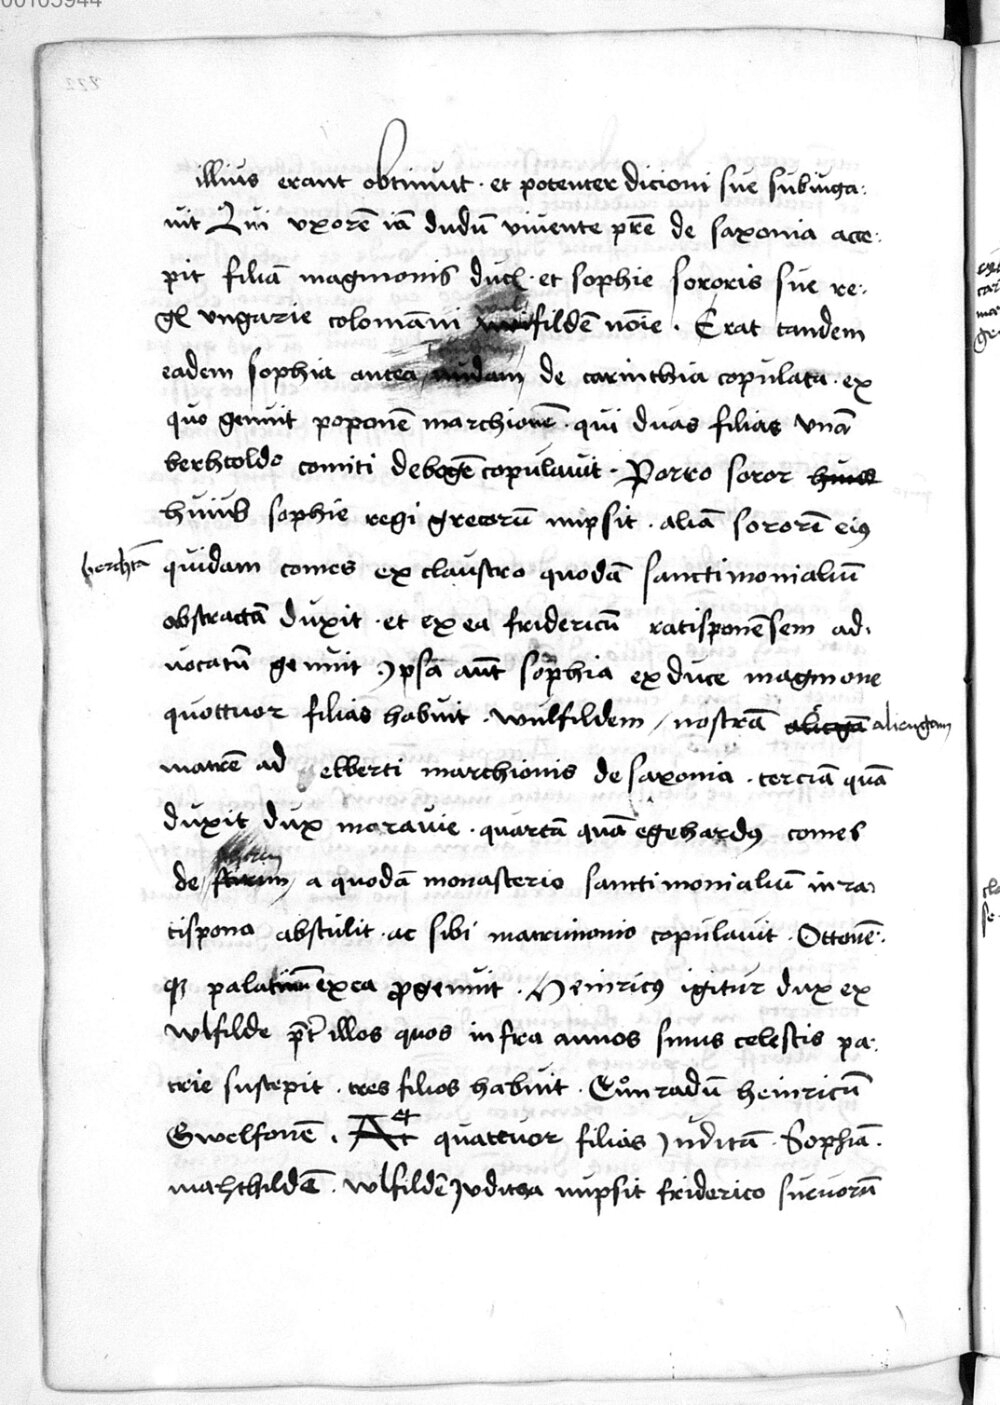 00103944
illius erant obtinuit · et potenter dicioni sue subiuga:
uit Qui vxorē iā dudū viuente pr̄e de saxonia acce:
pit filiā magnonis ducꝭ · et sophie sororis sue re:
gꝭ vngarie colomanni wulfildē noīe · Erat tandem
eadem sophia antea de carinthia copulata · ex
quo genuit poponē marchionē · qui duas filias vnā
berhtoldo comiti de bogē copulauit · Porro soror huius
huius sophie regi grecorū nupsit · aliā sororē eiꝰ
berchtā quidam comes ex claustro quodā sanctimonialiū
obstractā duxit · et ex ea fridericū ratisponēsem ad:
uocatū genuit Ipsa aūt sophia ex duce magnone
quottuor filias habuit · wulfildem / nostrā aliengam
matrē ad elberti marchionis de saxonia · terciā quā
duxit dux morauie · quartā quā egehardꝰ comes
de a quodā monasterio sanctimonialiū in ra:
tispona abstulit · ac sibi matrimonio copulauit · Ottonē:
qꝫ palatinū ex ea ꝓgenuit · Heinricꝰ igitur dux ex
wlfilde pͭr̄ illos quos infra annos sinus celestis pa:
trie suscepit · tres filios habuit · Cůnradū heinricū
Gwelfonē · Et quattuor filias Juditā · Sophiā ·
mahthildē · wlfildē Juditha nupsit friderico sueuorū